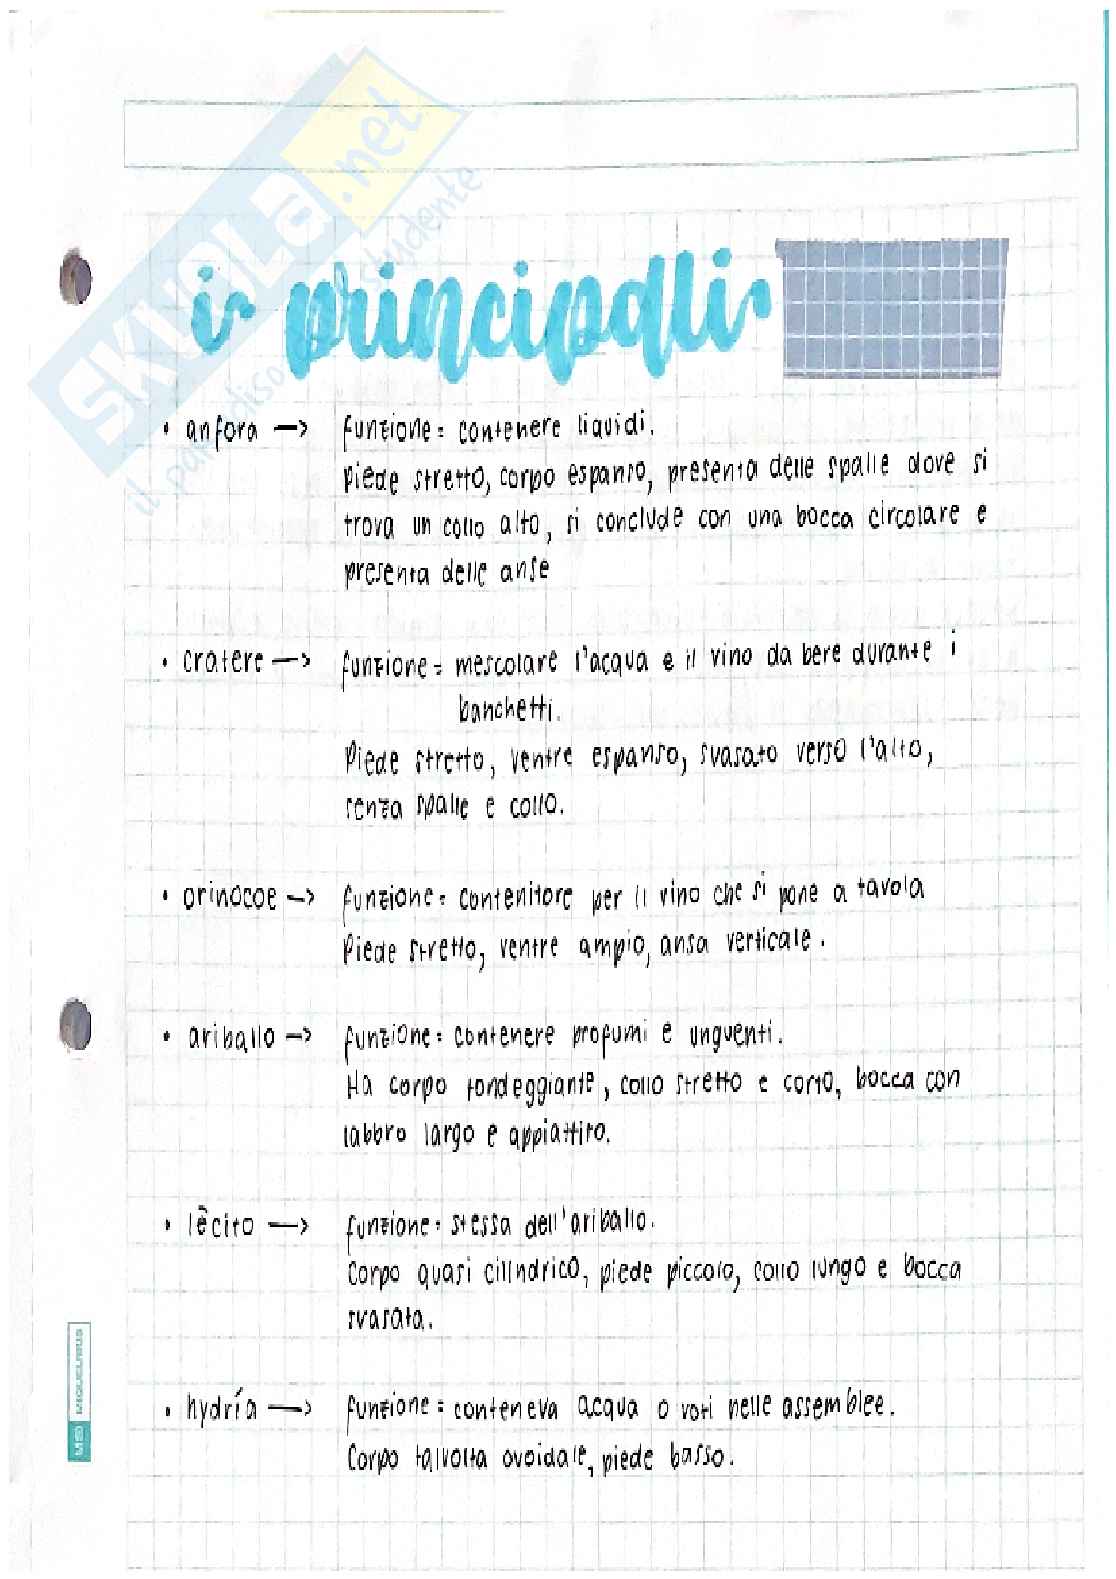 SKUOLA.net
il paradiso dello studente
i principali
• anfora → funzione = contenere liquidi.
piede stretto, corpo espanso, presenta delle spalle dove si
trova un collo alto, si conclude con una bocca circolare e
presenta delle anse
• cratere → funzione = mescolare l'acqua e il vino da bere durante i
banchetti.
Piede stretto, ventre espanso, svasato verso l'alto,
senza spalle e collo.
• orinocoe → funzione = contenitore per il vino che si pone a tavola
Piede stretto, ventre ampio, ansa verticale.
• ariballo → funzione = contenere profumi e unguenti.
Ha corpo tondeggiante, collo stretto e corto, bocca con
labbro largo e appiattito.
• lêcito → funzione = stessa dell'ariballo.
Corpo quasi cilindrico, piede piccolo, collo lungo e bocca
svasata.
• hydría → funzione = conteneva acqua o voti nelle assemblee.
Corpo talvolta ovoidale, piede basso.
MIQUELRIUS